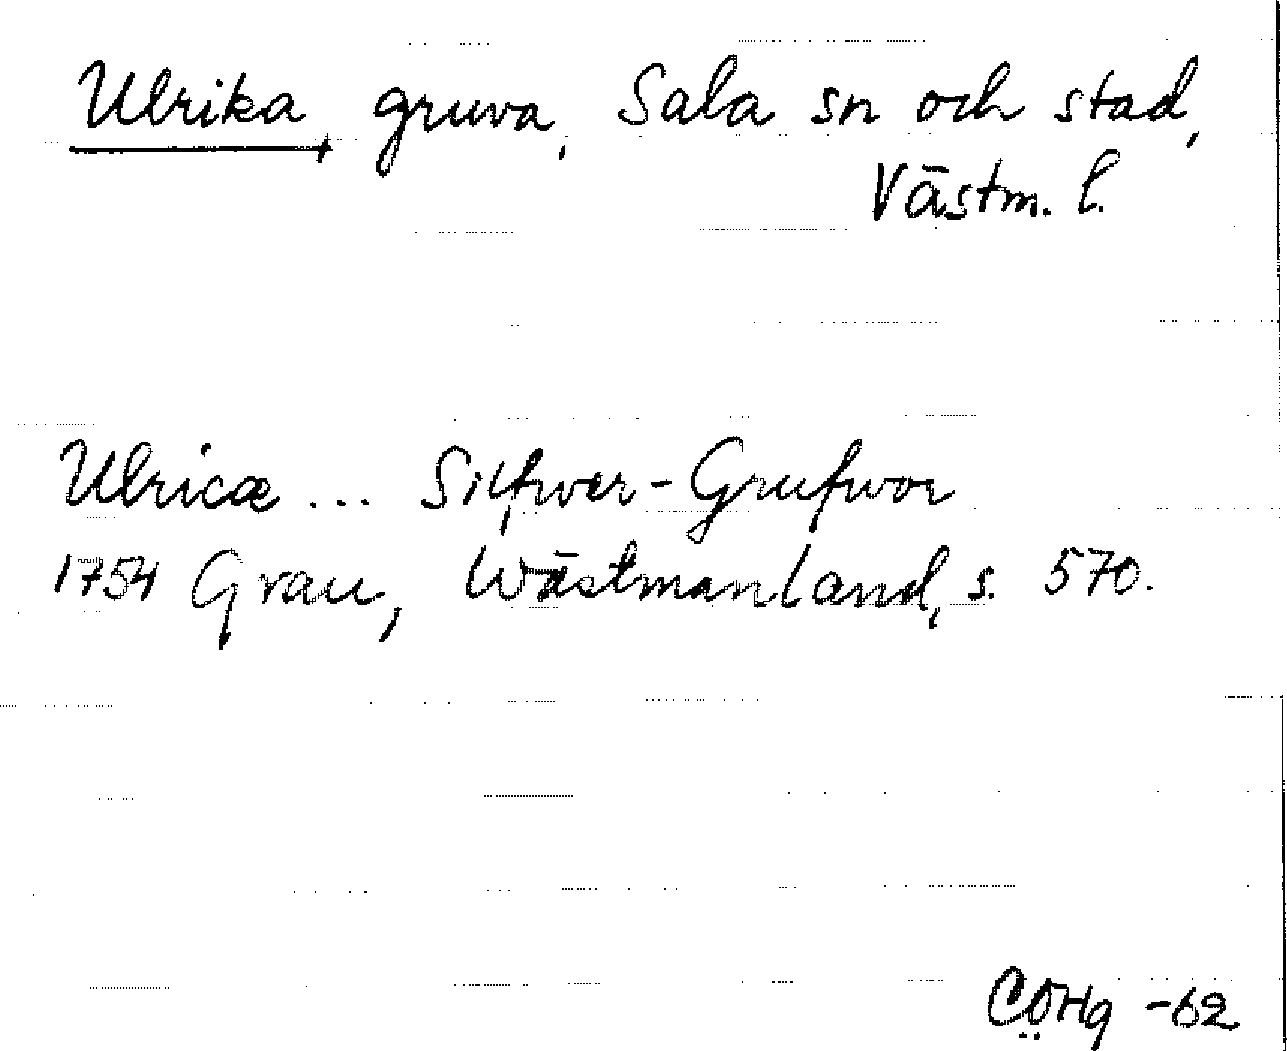 Ulrika gruva, Sala sn och stad,
Västm. l.
Ulricæ ... Silfwer-Grufwor
1754 Grau, Wästmanland, s. 570.
CÖHg -62